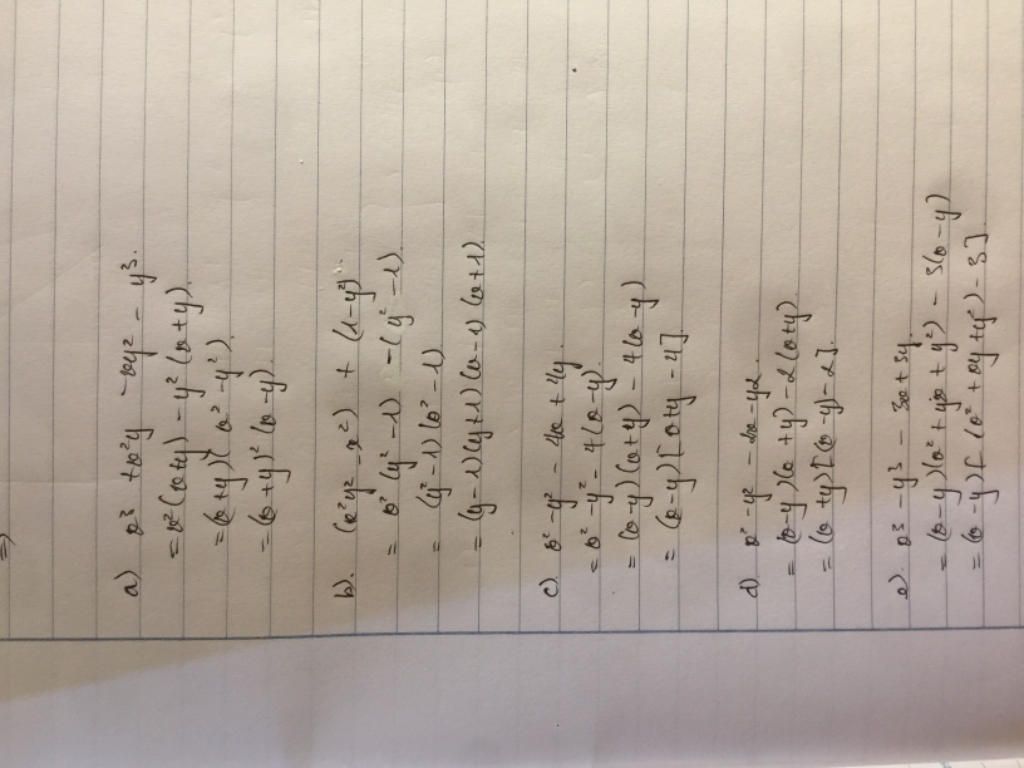 =>
a) x³ + x²y - xy² - y³.
= x² (x+y) - y² (x+y).
= (x+y) (x² - y²).
= (x+y)² (x-y).
b). (x²y² - x²) + (1-y²).
= x² (y² - 1) - (y² - 1)
= (y² - 1) (x² - 1)
= (y-1)(y+1) (x-1) (x+1)
c). x² - y² - 4x + 4y.
= x² - y² - 4 (x-y).
= (x-y) (x+y) - 4 (x-y)
= (x-y) [x+y - 4].
d). x² - y² - 2x - y2.
= (x-y)(x+y) - 2 (x+y)
= (x+y)[(x-y) - 2].
e). x³ - y³ - 3x + 3y.
= (x-y)(x² + yx + y²) - 3(x-y)
= (x-y) [ (x² + xy + y²) - 3].